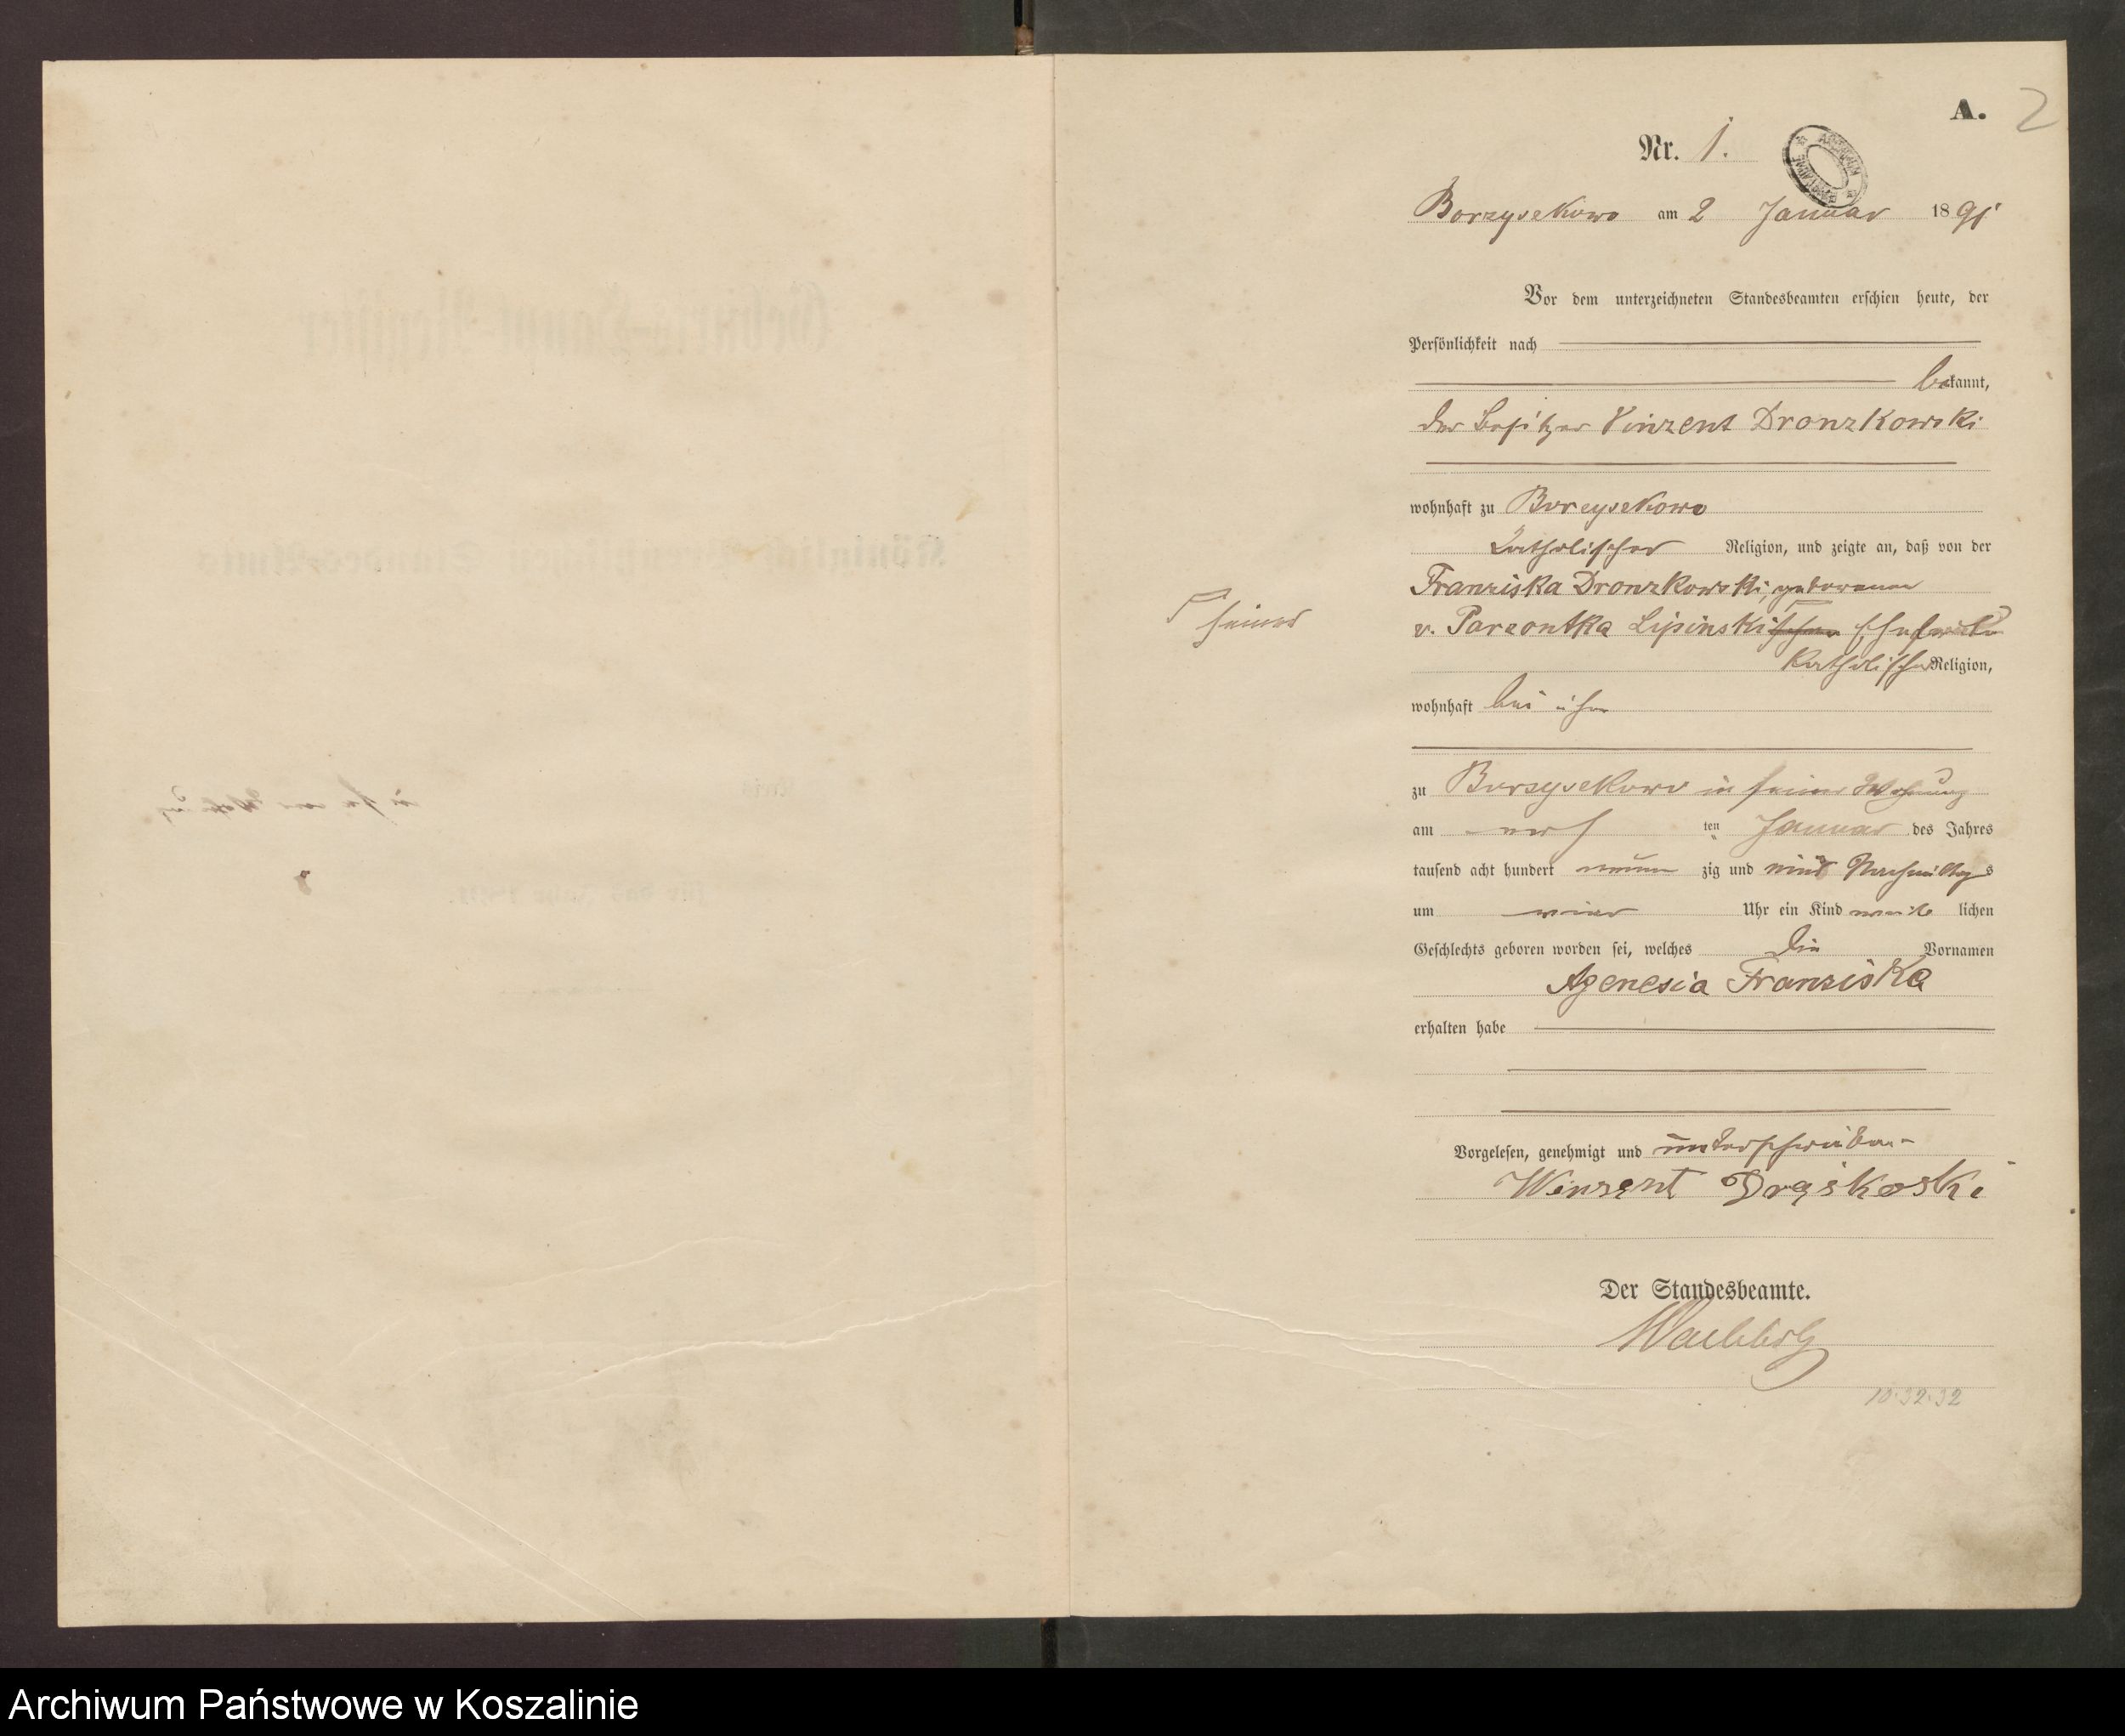 A. 2
Nr. 1.
Borzyskowo am 2 Januar 1891
Vor dem unterzeichneten Standesbeamten erschien heute, der
Persönlichkeit nach
bekannt,
der Besitzer Vinzent Dronzkowski
wohnhaft zu Borzyskowo
katholischer Religion, und zeigte an, daß von der
Franziska Dronzkowski, geborenen
v. Parzontka Lipinski Ehefrau
seiner
katholischer Religion,
wohnhaft bei ihm
zu Borzyskowo in seiner Wohnung
am ersten Januar des Jahres
tausend acht hundert neun zig und eins Nachmittags
um Uhr ein Kind weib lichen
Geschlechts geboren worden sei, welches die Vornamen
Agenesia Franziska
erhalten habe
Vorgelesen, genehmigt und unterschrieben
Winzent Drąskoski
Der Standesbeamte.
10.32.32
Archiwum Państwowe w Koszalinie